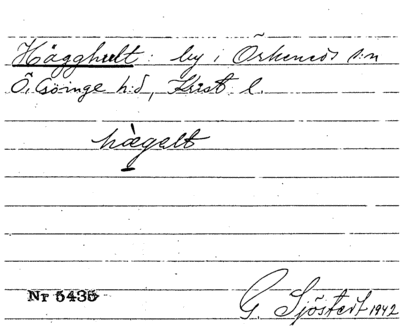 Hägghult: by i Örkeneds s:n
Ö. Göinge h:d, Krist. l.
hægelt
Nr 5435
G. Sjöstedt 1942